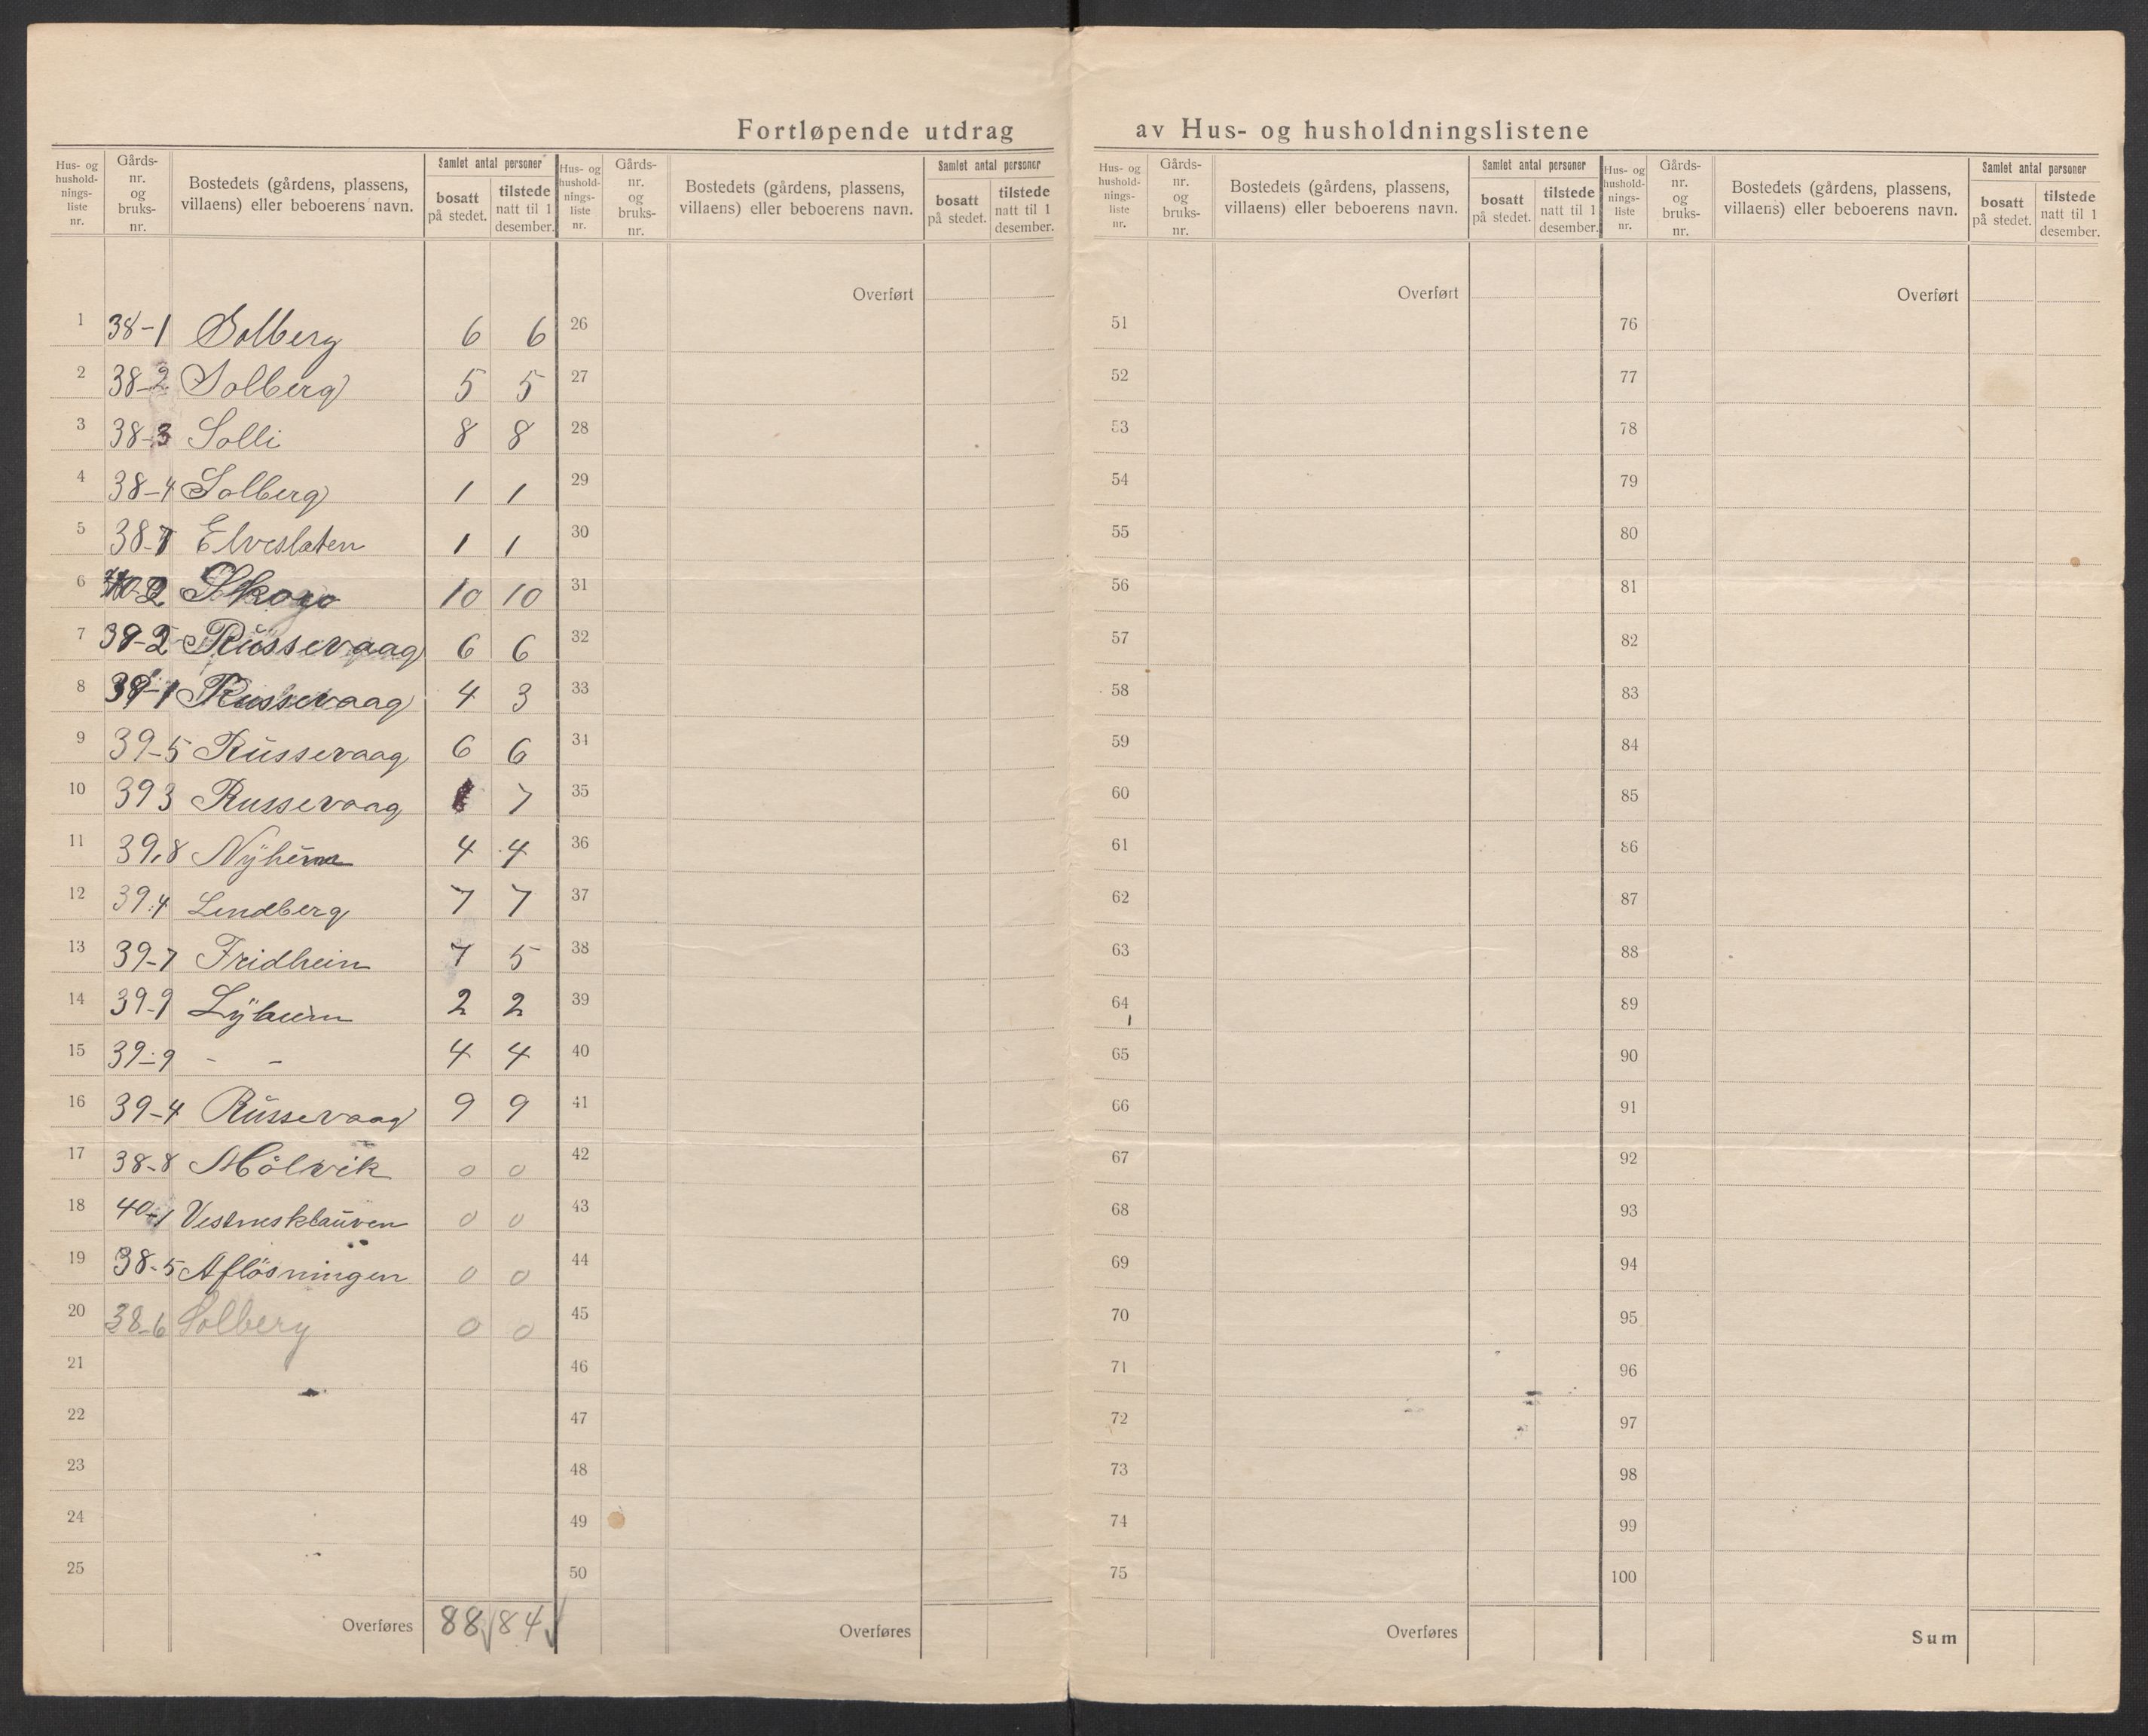 Fortløpende utdrag av Hus- og husholdningslistene
Hus- og hushold-nings-liste nr. Gårds-nr. og bruks-nr. Bostedets (gårdens, plassens, villaens) eller beboerens navn. Samlet antal personer bosatt på stedet. tilstede natt til 1 desember.
Hus- og hushold-nings-liste nr. Gårds-nr. og bruks-nr. Bostedets (gårdens, plassens, villaens) eller beboerens navn. Samlet antal personer bosatt på stedet. tilstede natt til 1 desember.
Hus- og hushold-nings-liste nr. Gårds-nr. og bruks-nr. Bostedets (gårdens, plassens, villaens) eller beboerens navn. Samlet antal personer bosatt på stedet. tilstede natt til 1 desember.
Hus- og hushold-nings-liste nr. Gårds-nr. og bruks-nr. Bostedets (gårdens, plassens, villaens) eller beboerens navn. Samlet antal personer bosatt på stedet. tilstede natt til 1 desember.
Overført Overført Overført
1 38-1 Solberg 6 6 26 51 76
2 38-2 Solberg 5 5 27 52 77
3 38-3 Solli 8 8 28 53 78
4 38-4 Solberg 1 1 29 54 79
5 38-7 Elvesleten 1 1 30 55 80
6 40-2 Skogo 10 10 31 56 81
7 39-2 Russevaag 6 6 32 57 82
8 39-1 Russevaag 4 3 33 58 83
9 39-5 Russevaag 6 6 34 59 84
10 39 3 Russevaag 7 35 60 85
11 39.8 Nyheim 4 4 36 61 86
12 39.4 Lindberg 7 7 37 62 87
13 39-7 Fridheim 7 5 38 63 88
14 39-9 2 2 39 64 89
15 39-9 - - 4 4 40 65 90
16 39-4 Russevaag 9 9 41 66 91
17 38-8 Mölvik 0 0 42 67 92
18 40-1 Vestnesklauven 0 0 43 68 93
19 38-5 Aflösningen 0 0 44 69 94
20 38-6 Solberg 0 0 45 70 95
21 46 71 96
22 47 72 97
23 48 73 98
24 49 74 99
25 50 75 100
Overføres 88 84 Overføres Overføres Sum